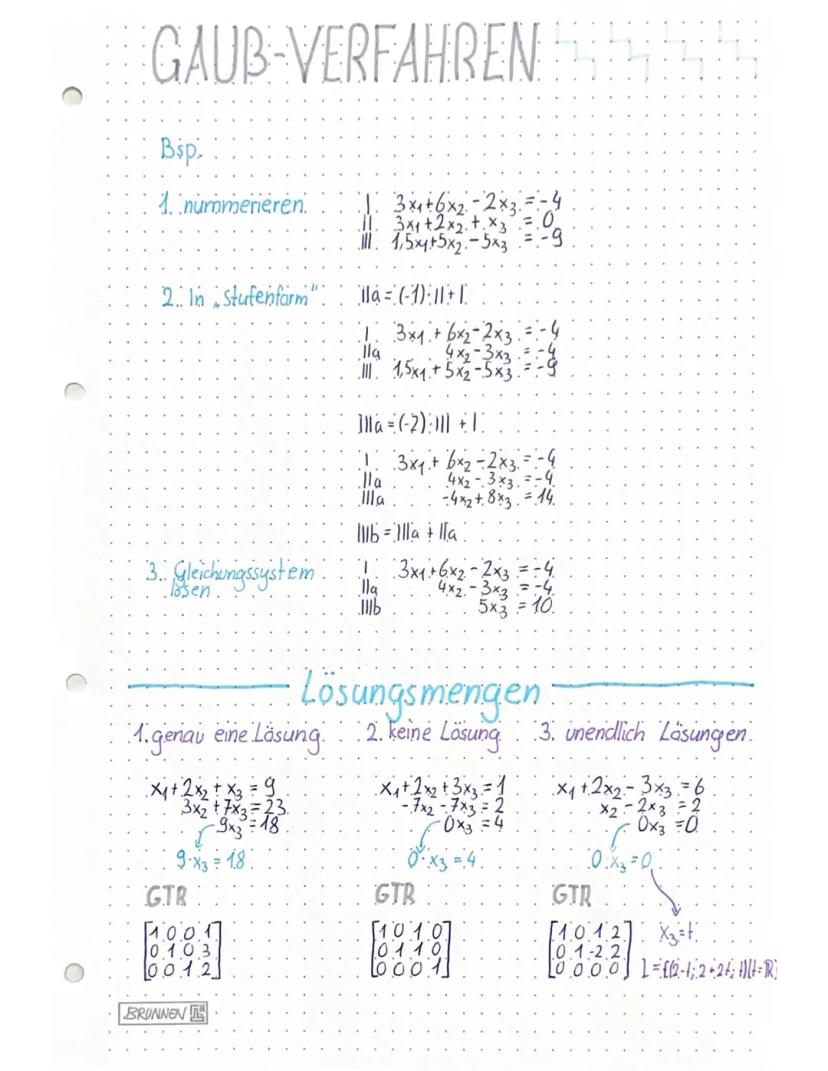 GAUß-VERFAHREN
Bsp.
1. nummerieren
I 3x₁+6x₂-2x₃=-4
II 3x₁+2x₂+x₃=0
III 1,5x₁+5x₂-5x₃=-9
2. In „Stufenform"
IIa=(-1)·II+I
I 3x₁+6x₂-2x₃=-4
IIa 4x₂-3x₃=-4
III 1,5x₁+5x₂-5x₃=-9
IIIa=(-2)·III+I
I 3x₁+6x₂-2x₃=-4
IIa 4x₂-3x₃=-4
IIIa -4x₂+8x₃=14
IIIb=IIIa+IIa
3. Gleichungssystem lösen
I 3x₁+6x₂-2x₃=-4
IIa 4x₂-3x₃=-4
IIIb 5x₃=10
Lösungsmengen
1. genau eine Lösung
x₁+2x₂+x₃=9
3x₂+7x₃=23
9x₃=18
9·x₃=18
GTR
[1 0 0 1]
[0 1 0 3]
[0 0 1 2]
2. keine Lösung
x₁+2x₂+3x₃=1
-7x₂-7x₃=2
0x₃=4
0·x₃=4
GTR
[1 0 1 0]
[0 1 1 0]
[0 0 0 1]
3. unendlich Lösungen
x₁+2x₂-3x₃=6
x₂-2x₃=2
0x₃=0
0·x₃=0
GTR
[1 0 1 2]
[0 1 -2 2]
[0 0 0 0]
x₃=t
L={(2-t; 2+2t; t)|t=ℝ}
BRUNNEN